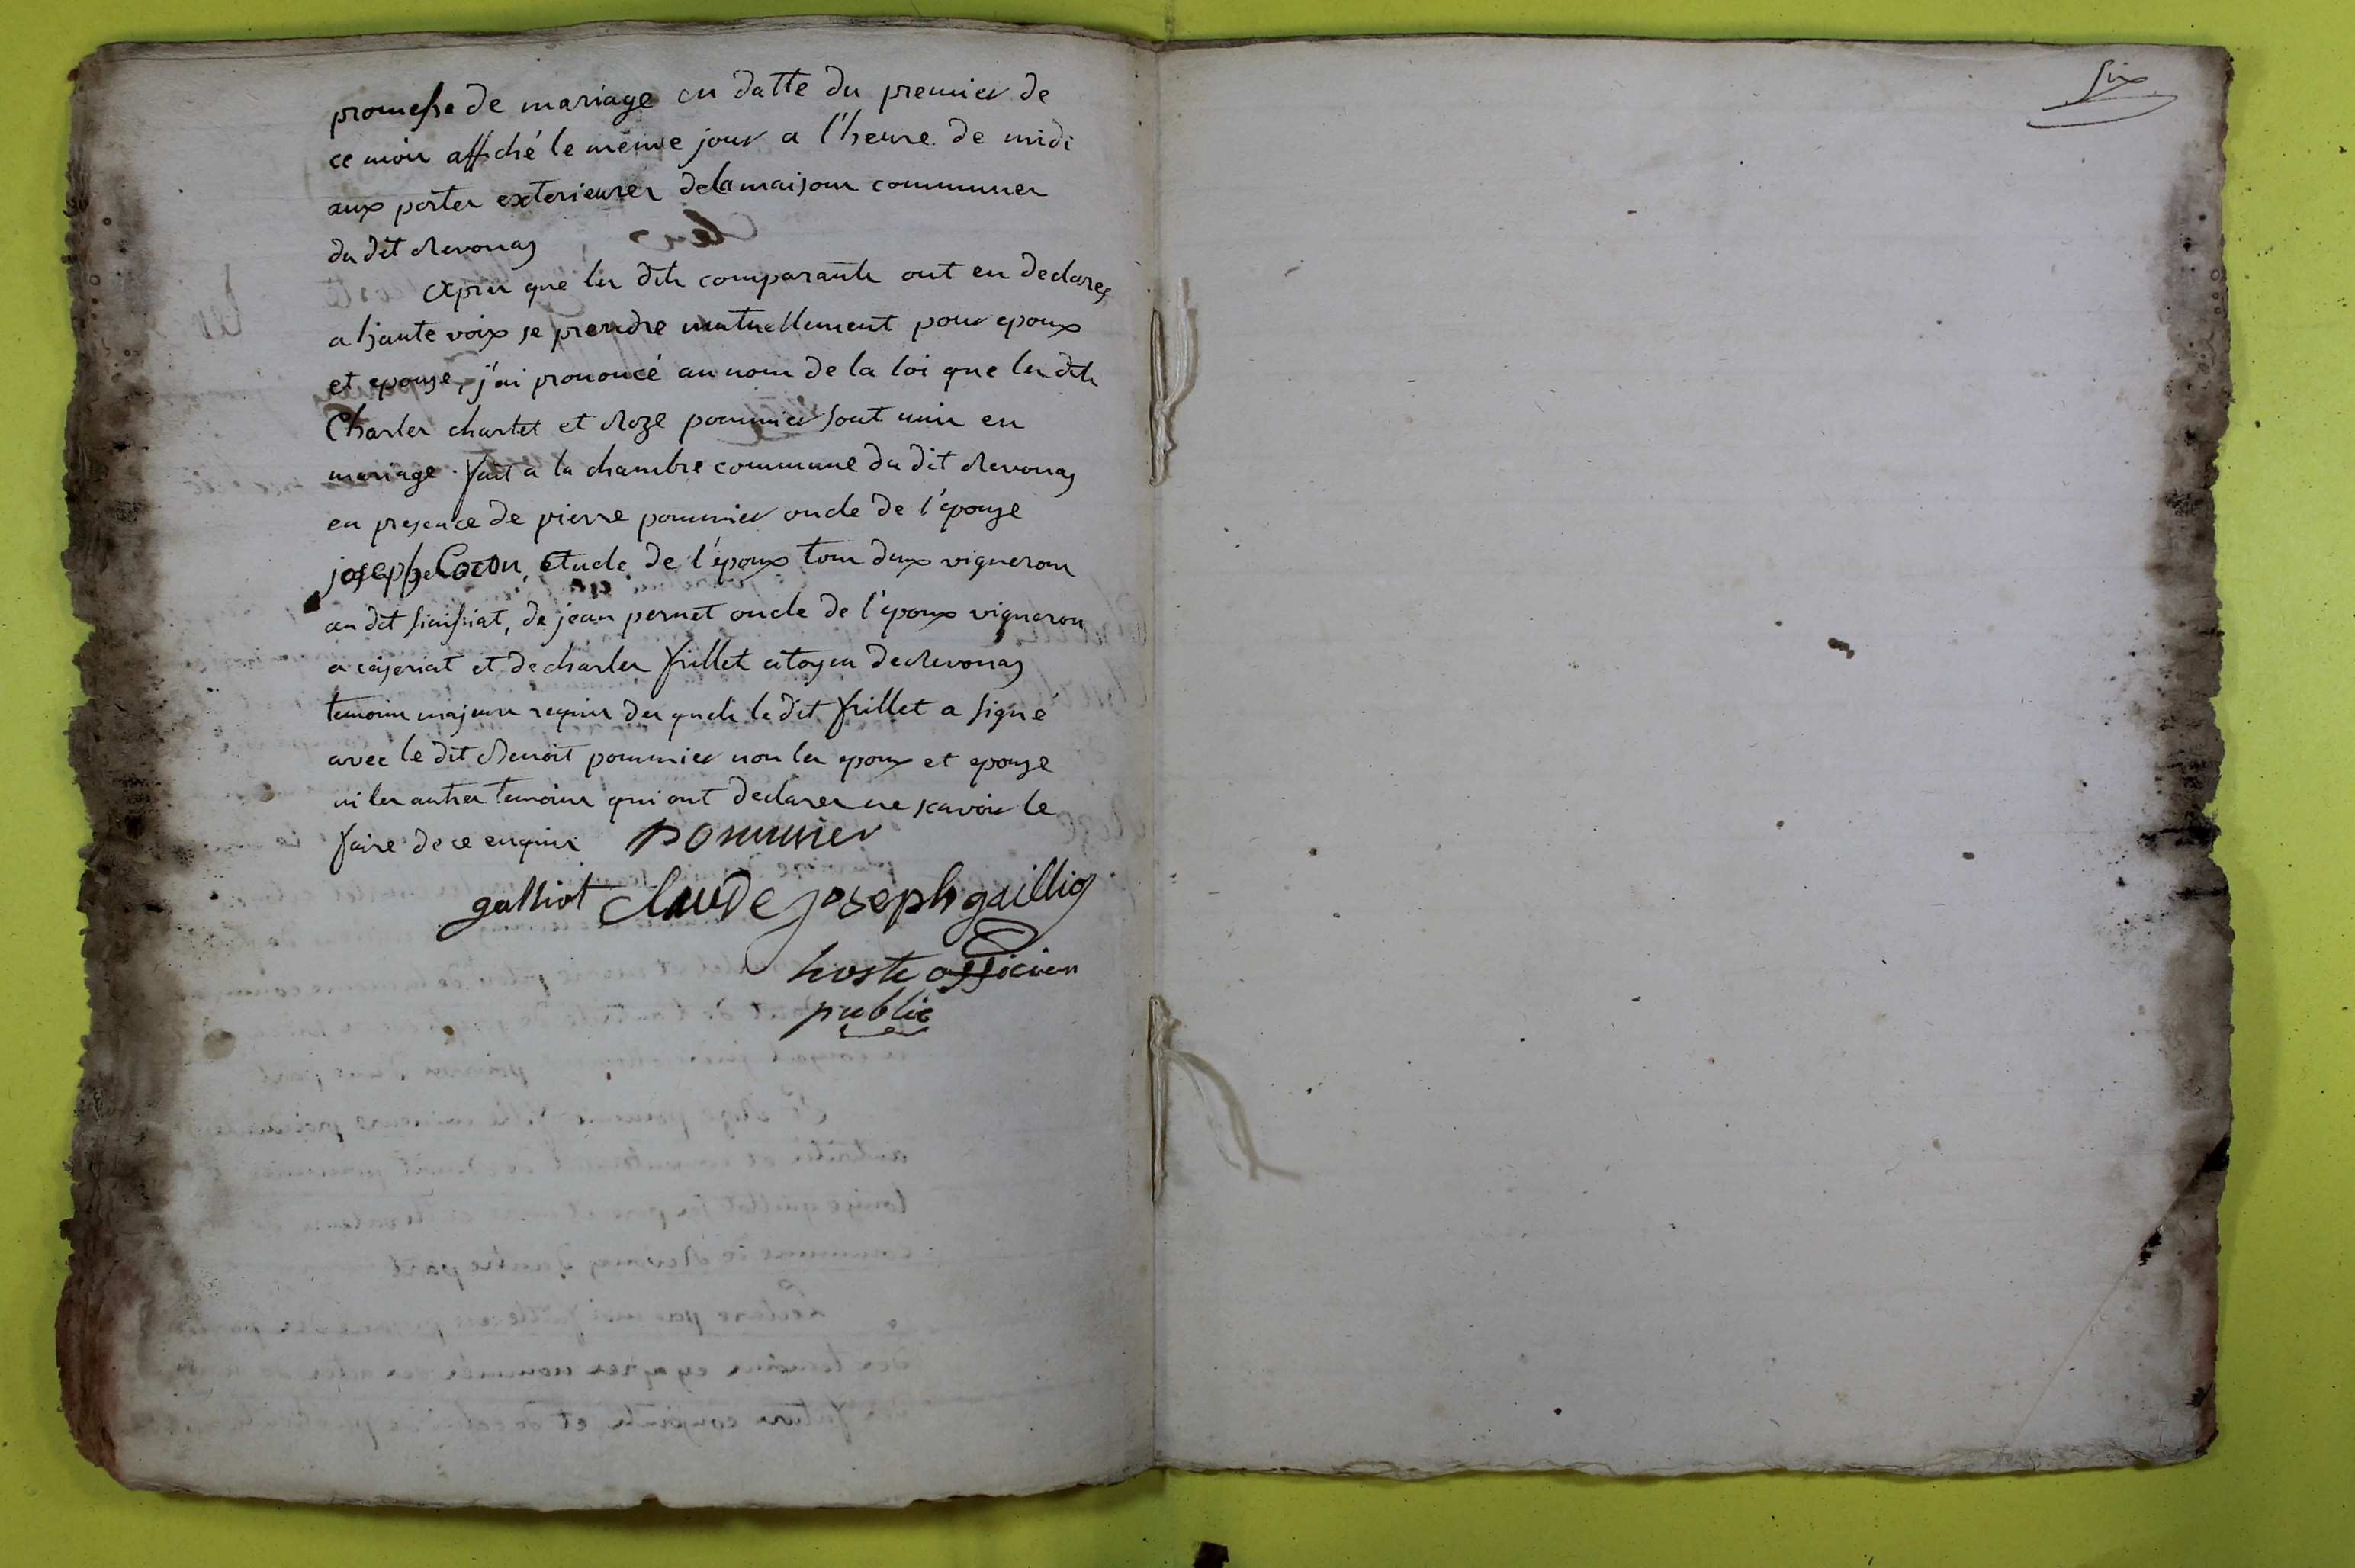 promesse de mariage en datte du premier de
ce mois affiché le même jour a l'heure de midi
aux portes exterieures de la maison communes
du dit Revonas
Après que les dits comparants ont eu declarés
a haute voix se prendre mutuellement pour epoux
et epouse, j'ai prononcé au nom de la loi que les dits
Charles chartet et Roze pommier sont unis en
mariage. fait a la chambre commune du dit Revonas
en presence de pierre pommier oncle de l'epouze
joseph de l'epoux tous deux vignerons
au dit simfiat, de jean pernet oncle de l'epoux vigneron
a ceyseriat et de charles frillet citoyen de Revonas
temoins majeurs requis des quels le dit frillet a signé
avec le dit Benoit pommier non les epoux et epouze
ni les autres temoins qui ont declarer ne scavoir le
faire de ce enquis pommier
galliot claude joseph gaillio
hoste officier
public
six